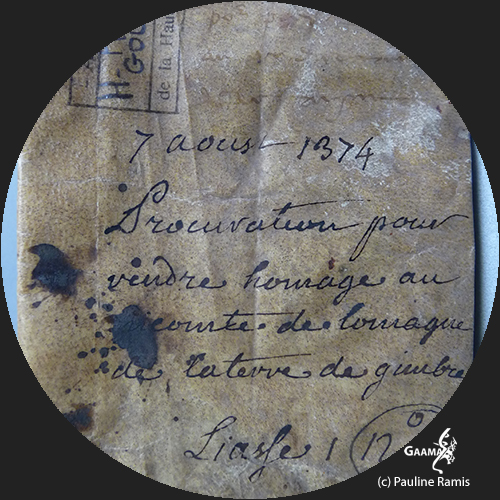 H-
GOU
de la Hau
7 aoust 1374
Procuration pour
rendre homage au
vicomte de lomagne
de laterre de gimbre
Liasse 1
GAAMA
(c) Pauline Ramis